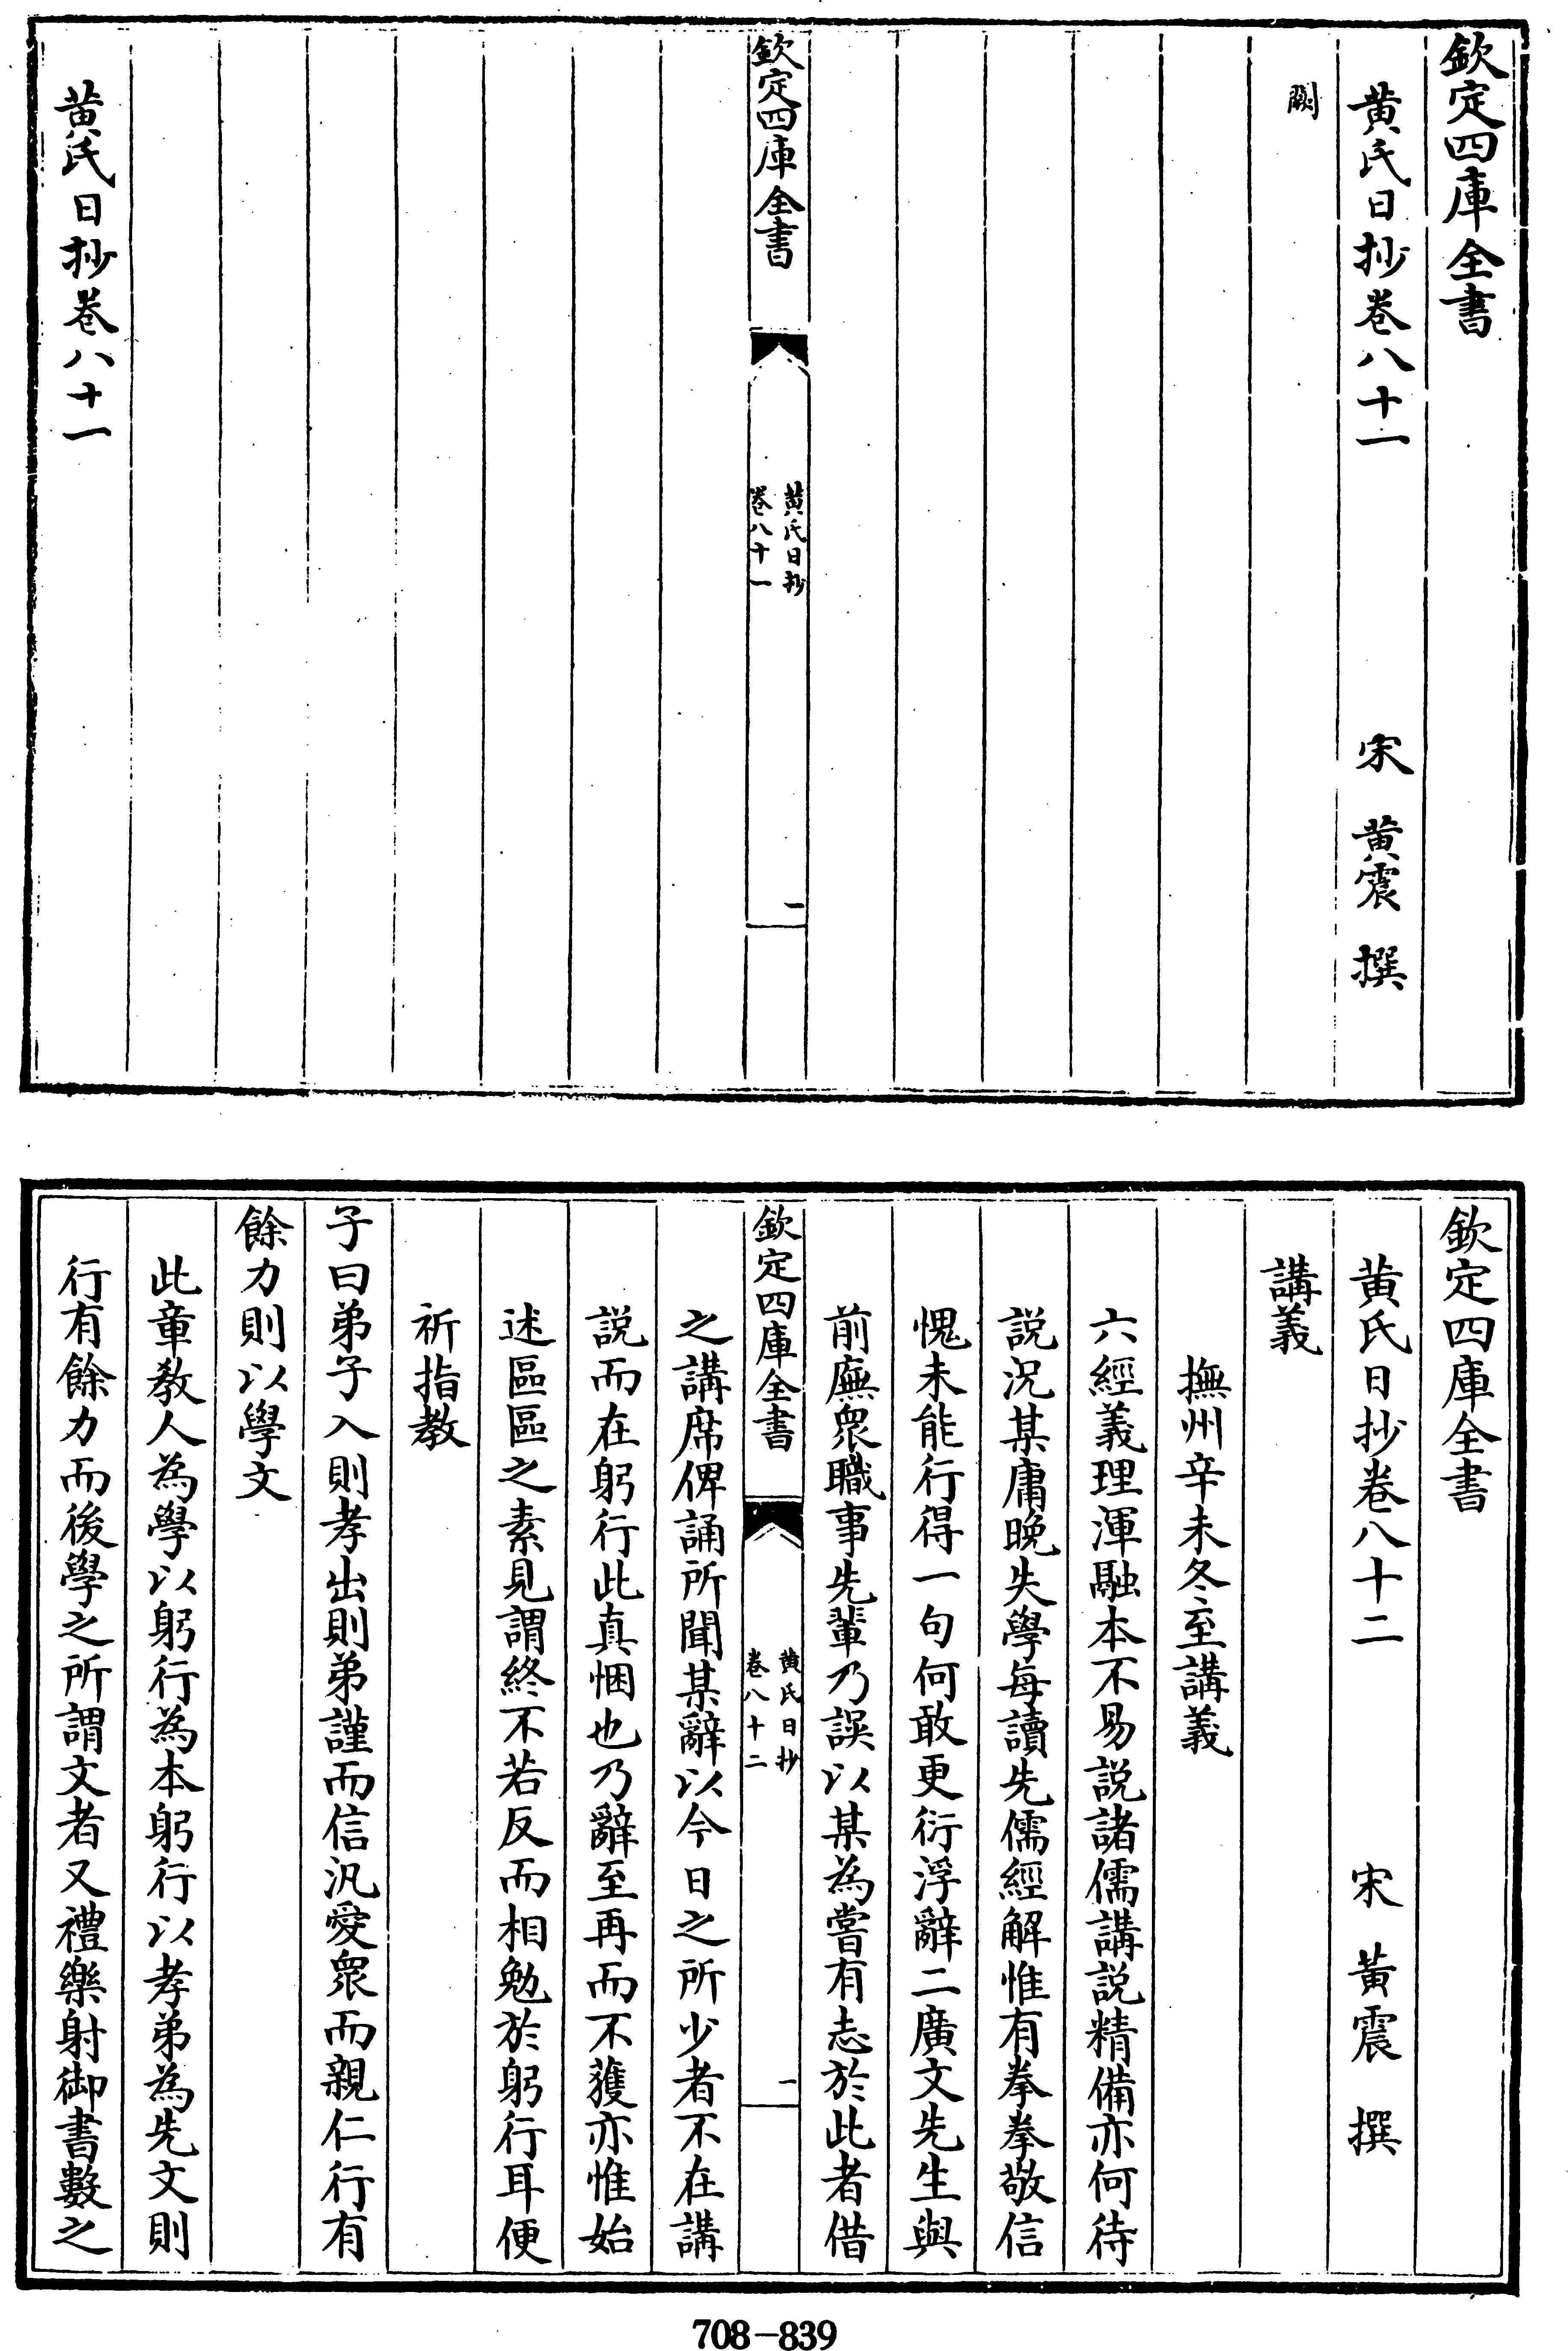 欽定四庫全書
黄氏日抄卷八十一
宋　黄震　撰
闕
欽定四庫全書
黄氏日抄
卷八十一
一
黄氏日抄卷八十一
欽定四庫全書
黄氏日抄卷八十二
宋　黄震　撰
講義
撫州辛未冬至講義
六經義理渾融本不易説諸儒講説精備亦何待
説況某庸晚失學每讀先儒經解惟有拳拳敬信
愧未能行得一句何敢更衍浮辭二廣文先生與
前廡衆職事先輩乃誤以某為嘗有志於此者借
欽定四庫全書
黄氏日抄
卷八十二
一
之講席俾誦所聞某辭以今日之所少者不在講
説而在躬行此真悃也乃辭至再而不獲亦惟始
述區區之素見謂終不若反而相勉於躬行耳便
祈指教
子曰弟子入則孝出則弟謹而信汎愛衆而親仁行有
餘力則以學文
此章教人為學以躬行為本躬行以孝弟為先文則
行有餘力而後學之所謂文者又禮樂射御書數之
708-839